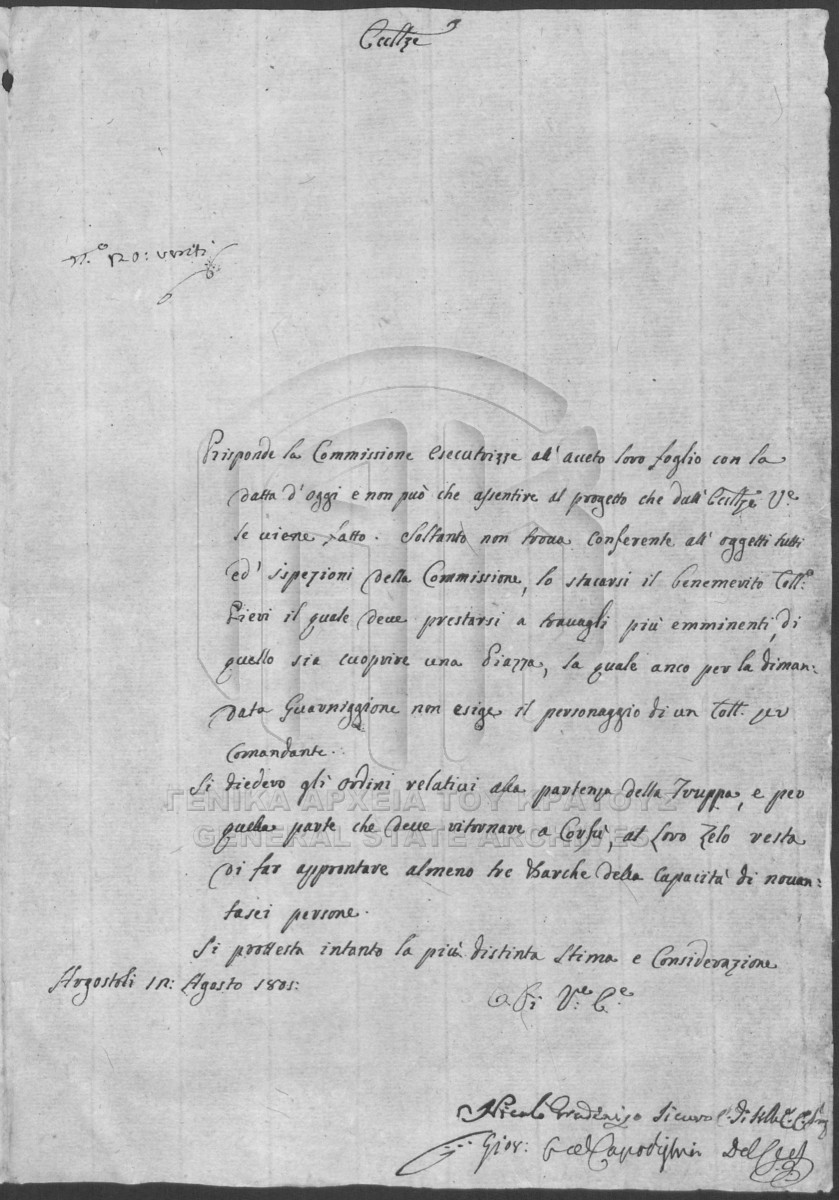 Eccllze
N.º 120: venti
Risponde la Commissione Esecutrizze all' acceto loro foglio con la
datta d'oggi e non può che assentire al progetto che dall' Eccllze V.e
le viene fatto. Soltanto non trova conferente all' oggetti tutti
ed' ispezioni della Commissione, lo stacarsi il benemerito Coll:º
Pieri il quale deve prestarsi a travagli più emminenti, di
quello sia cuoprire una Piazza, la quale anco per la diman:
data Guarniggione non esige il personaggio di un Coll: per
Comandante.
Si diedero gli ordini relativi alla partenza della Truppa, e per
quella parte che deve ritornare a Corfù, al Loro Zelo resta
di far approntare almeno tre Barche della Capacità di novan:
tasei persone.
Si prottesta intanto la più distinta Stima e Considerazione
Argostoli 12: Agosto 1801:
V.e E.e
Nicolò Gradenigo Sicuro
Giov: Capodistria Del
ΓΕΝΙΚΑ ΑΡΧΕΙΑ ΤΟΥ ΚΡΑΤΟΥΣ
GENERAL STATE ARCHIVES